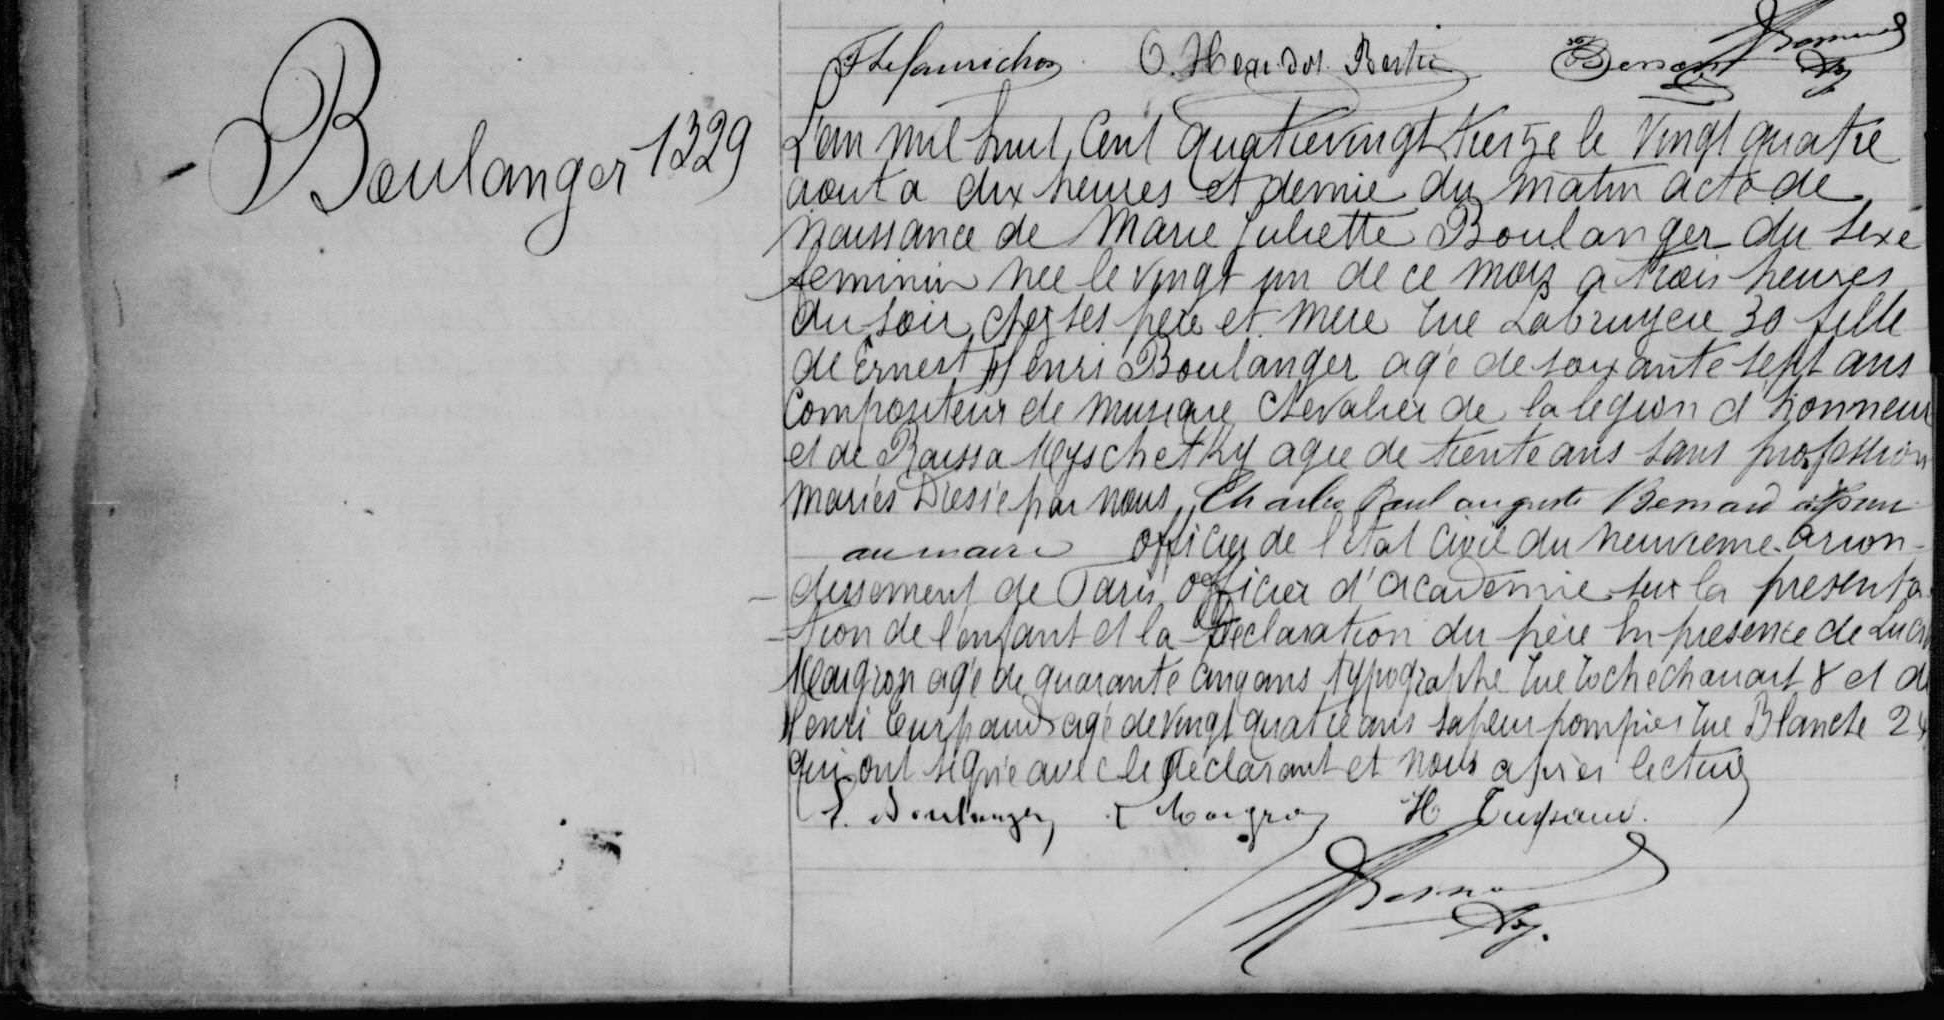 O. Bertin
Boulanger 1329
L'an mil huit cent quatrevingt treize le vingt quatre
aout a dix heures et demie du matin acte de
naissance de Marie Juliette Boulanger du sexe
feminin née le vingt un de ce mois a trois heures
du soir chez ses pere et mere rue Labruyere 30 fille
de Ernest Henri Boulanger agé de soixante sept ans
compositeur de musique chevalier de la legion d'honneur
et de Raissa Myschetky agee de trente ans sans profession
mariés Dressé par nous, Charles Paul auguste Bernard adjoint
au maire officier de l'état civil du neuvieme arron-
dissement de Paris officier d'académie sur la presenta
-tion de l'enfant et la declaration du père En presence de
Maigron agé de quarante cinq ans typographe rue rochechouart 8 et de
Henri Turpaud agé de vingt quatre ans sapeur pompier rue Blanche 24
qui ont signé avec le déclarant et nous après lecture
E. Boulanger L Maigron H Turpaud.